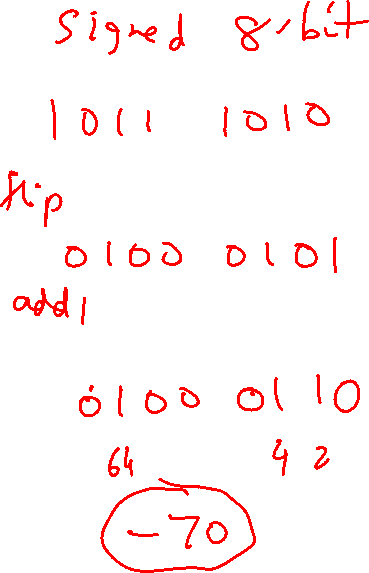 Signed 8-bit
1011 1010
flip
0100 0101
add 1
0100 0110
64 4 2
-70